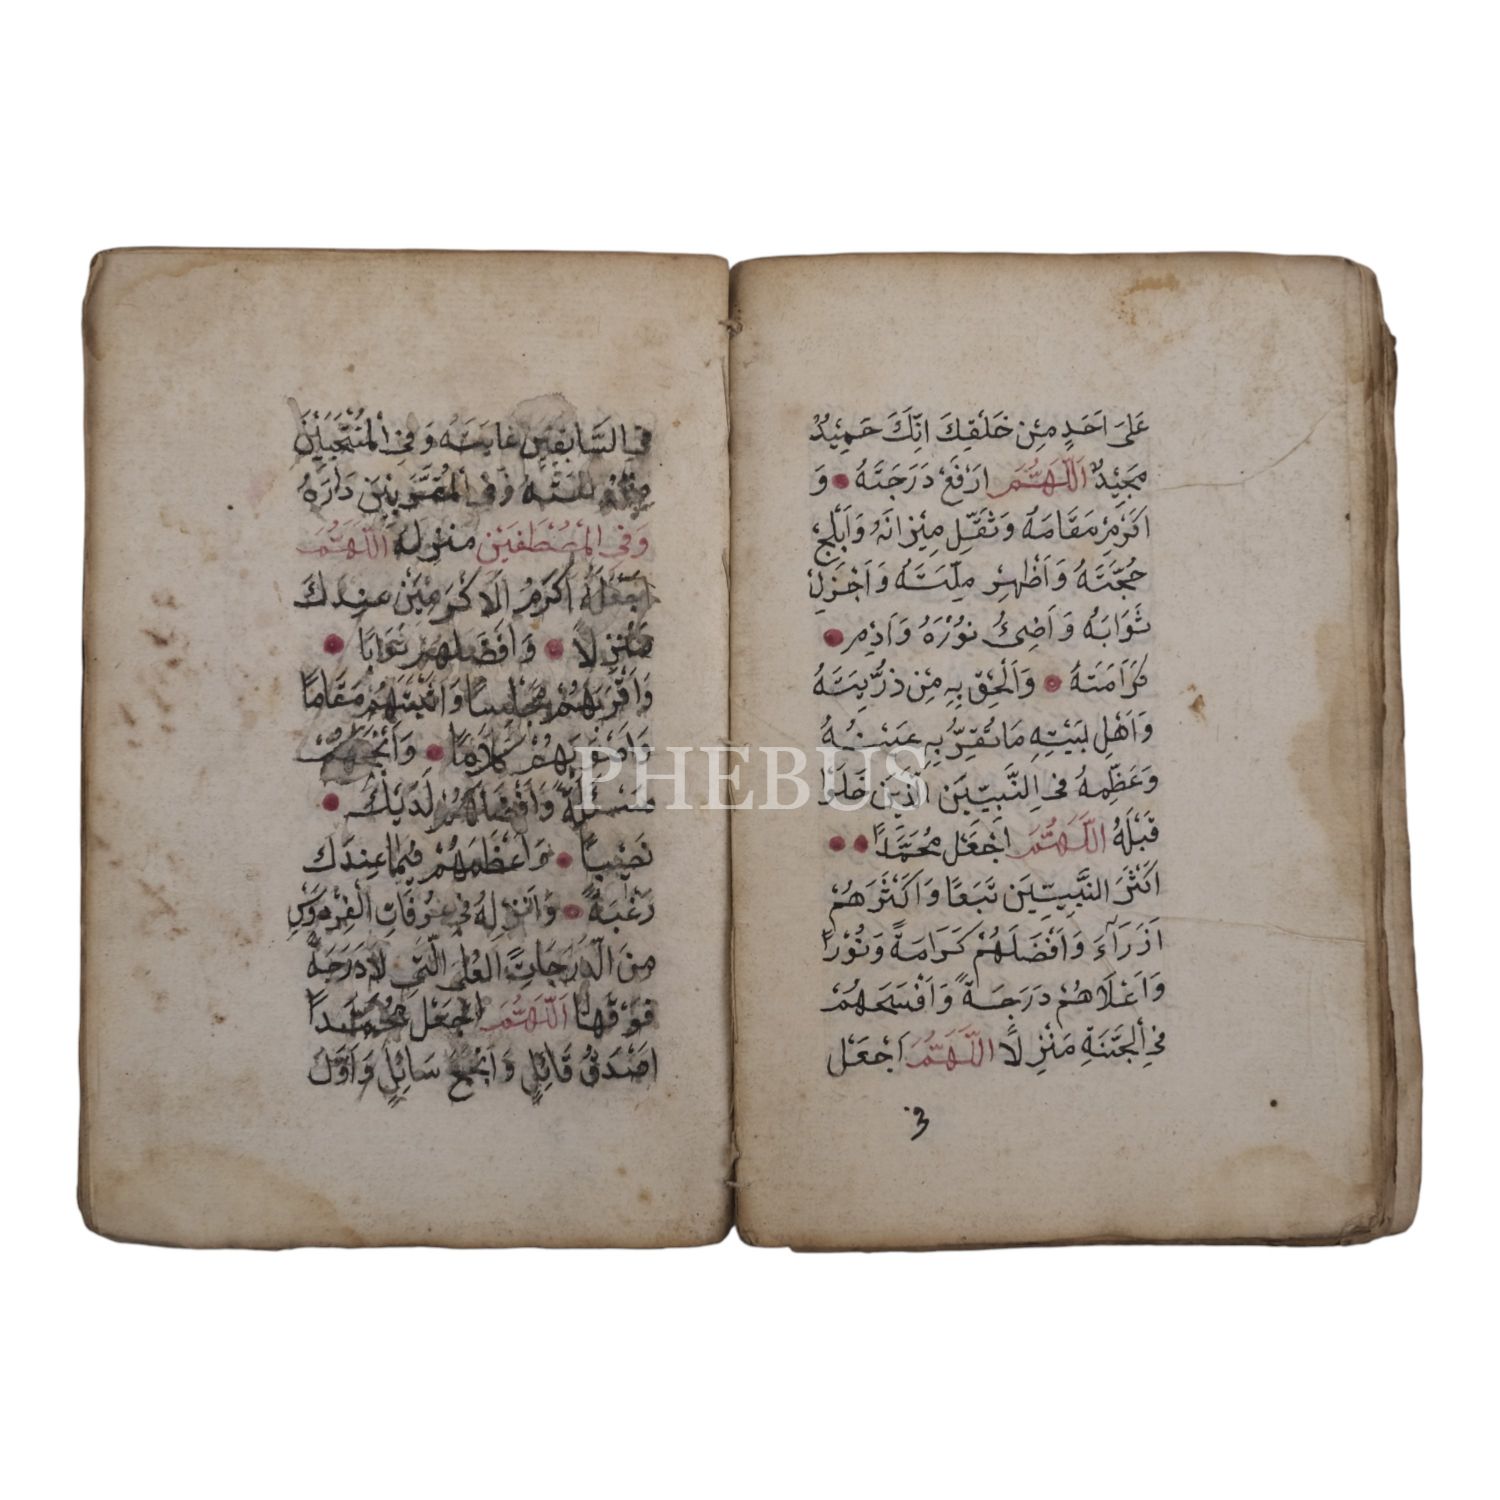 عَلَى اَحَدٍ مِنْ خَلْقِكَ اِنَّكَ حَمِيْدٌ
مَجِيْدٌ اَللّٰهُمَّ ارْفَعْ دَرَجَتَهُ وَ
اَكْرِمْ مَقَامَهُ وَثَقِّلْ مِيْزَانَهُ وَاَبْلِجْ
حُجَّتَهُ وَاَظْهِرْ مِلَّتَهُ وَاَجْزِلْ
ثَوَابَهُ وَاَضِئْ نُوْرَهُ وَاَدِمْ
كَرَامَتَهُ وَاَلْحِقْ بِهِ مِنْ ذُرِّيَّتِهُ
وَاَهْلِ بَيْتِهِ مَا تُقِرُّ بِهِ عَيْنُهُ
وَعَظِّمْهُ فِي النَّبِيّيْنَ الَّذِيْنَ خَلَوْا
قَبْلَهُ اَللّٰهُمَّ اجْعَلْ مُحَمَّدًا
اَكْثَرَ النَّبِيّيْنَ تَبَعًا وَاَكْثَرَهُمْ
اَزَرَآءَ وَاَفْضَلَهُمْ كَرَامَةً وَنُوْرًا
وَاَعْلَاهُمْ دَرَجَةً وَاَفْسَحَهُمْ
فِي الْجَنَّةِ مَنْزِلًا اَللّٰهُمَّ اجْعَلْ
فِي السَّابِقِيْنَ غَايَتَهُ وَفِي الْمُنْتَجَبِيْنَ
مَنْزِلَتَهُ وَفِي الْمُقَرَّبِيْنَ دَارَهُ
وَفِي الْمُصْطَفَيْنَ مَنْزِلَهُ اَللّٰهُمَّ
اجْعَلْهُ اَكْرَمُ الْاَكْرَمِيْنَ عِنْدَكَ
مَنْزِلًا وَاَفْضَلَهُمْ ثَوَابًا
وَاَقْرَبَهُمْ مَجْلِسًا وَاَثْبَتَهُمْ مَقَامًا
وَاَصْوَبَهُمْ كَلَامًا وَاَنْجَحَهُمْ
مَسْئَلَةً وَاَفْضَلَهُمْ لَدَيْكَ
نَصِيْبًا وَاَعْظَمَهُمْ فِيْمَا عِنْدَكَ
رَغْبَةً وَاَنْزِلْهُ فِي غُرُفَاتِ الْفِرْدَوْسِ
مِنَ الدَّرَجَاتِ الْعُلَى الَّتِي لَا دَرَجَةً
فَوْقَهَا اَللّٰهُمَّ اجْعَلْ مُحَمَّدًا
اَصْدَقُ قَائِلٍ وَاَنْجَحَ سَائِلٍ وَاَوَّلَ
PHEBUS